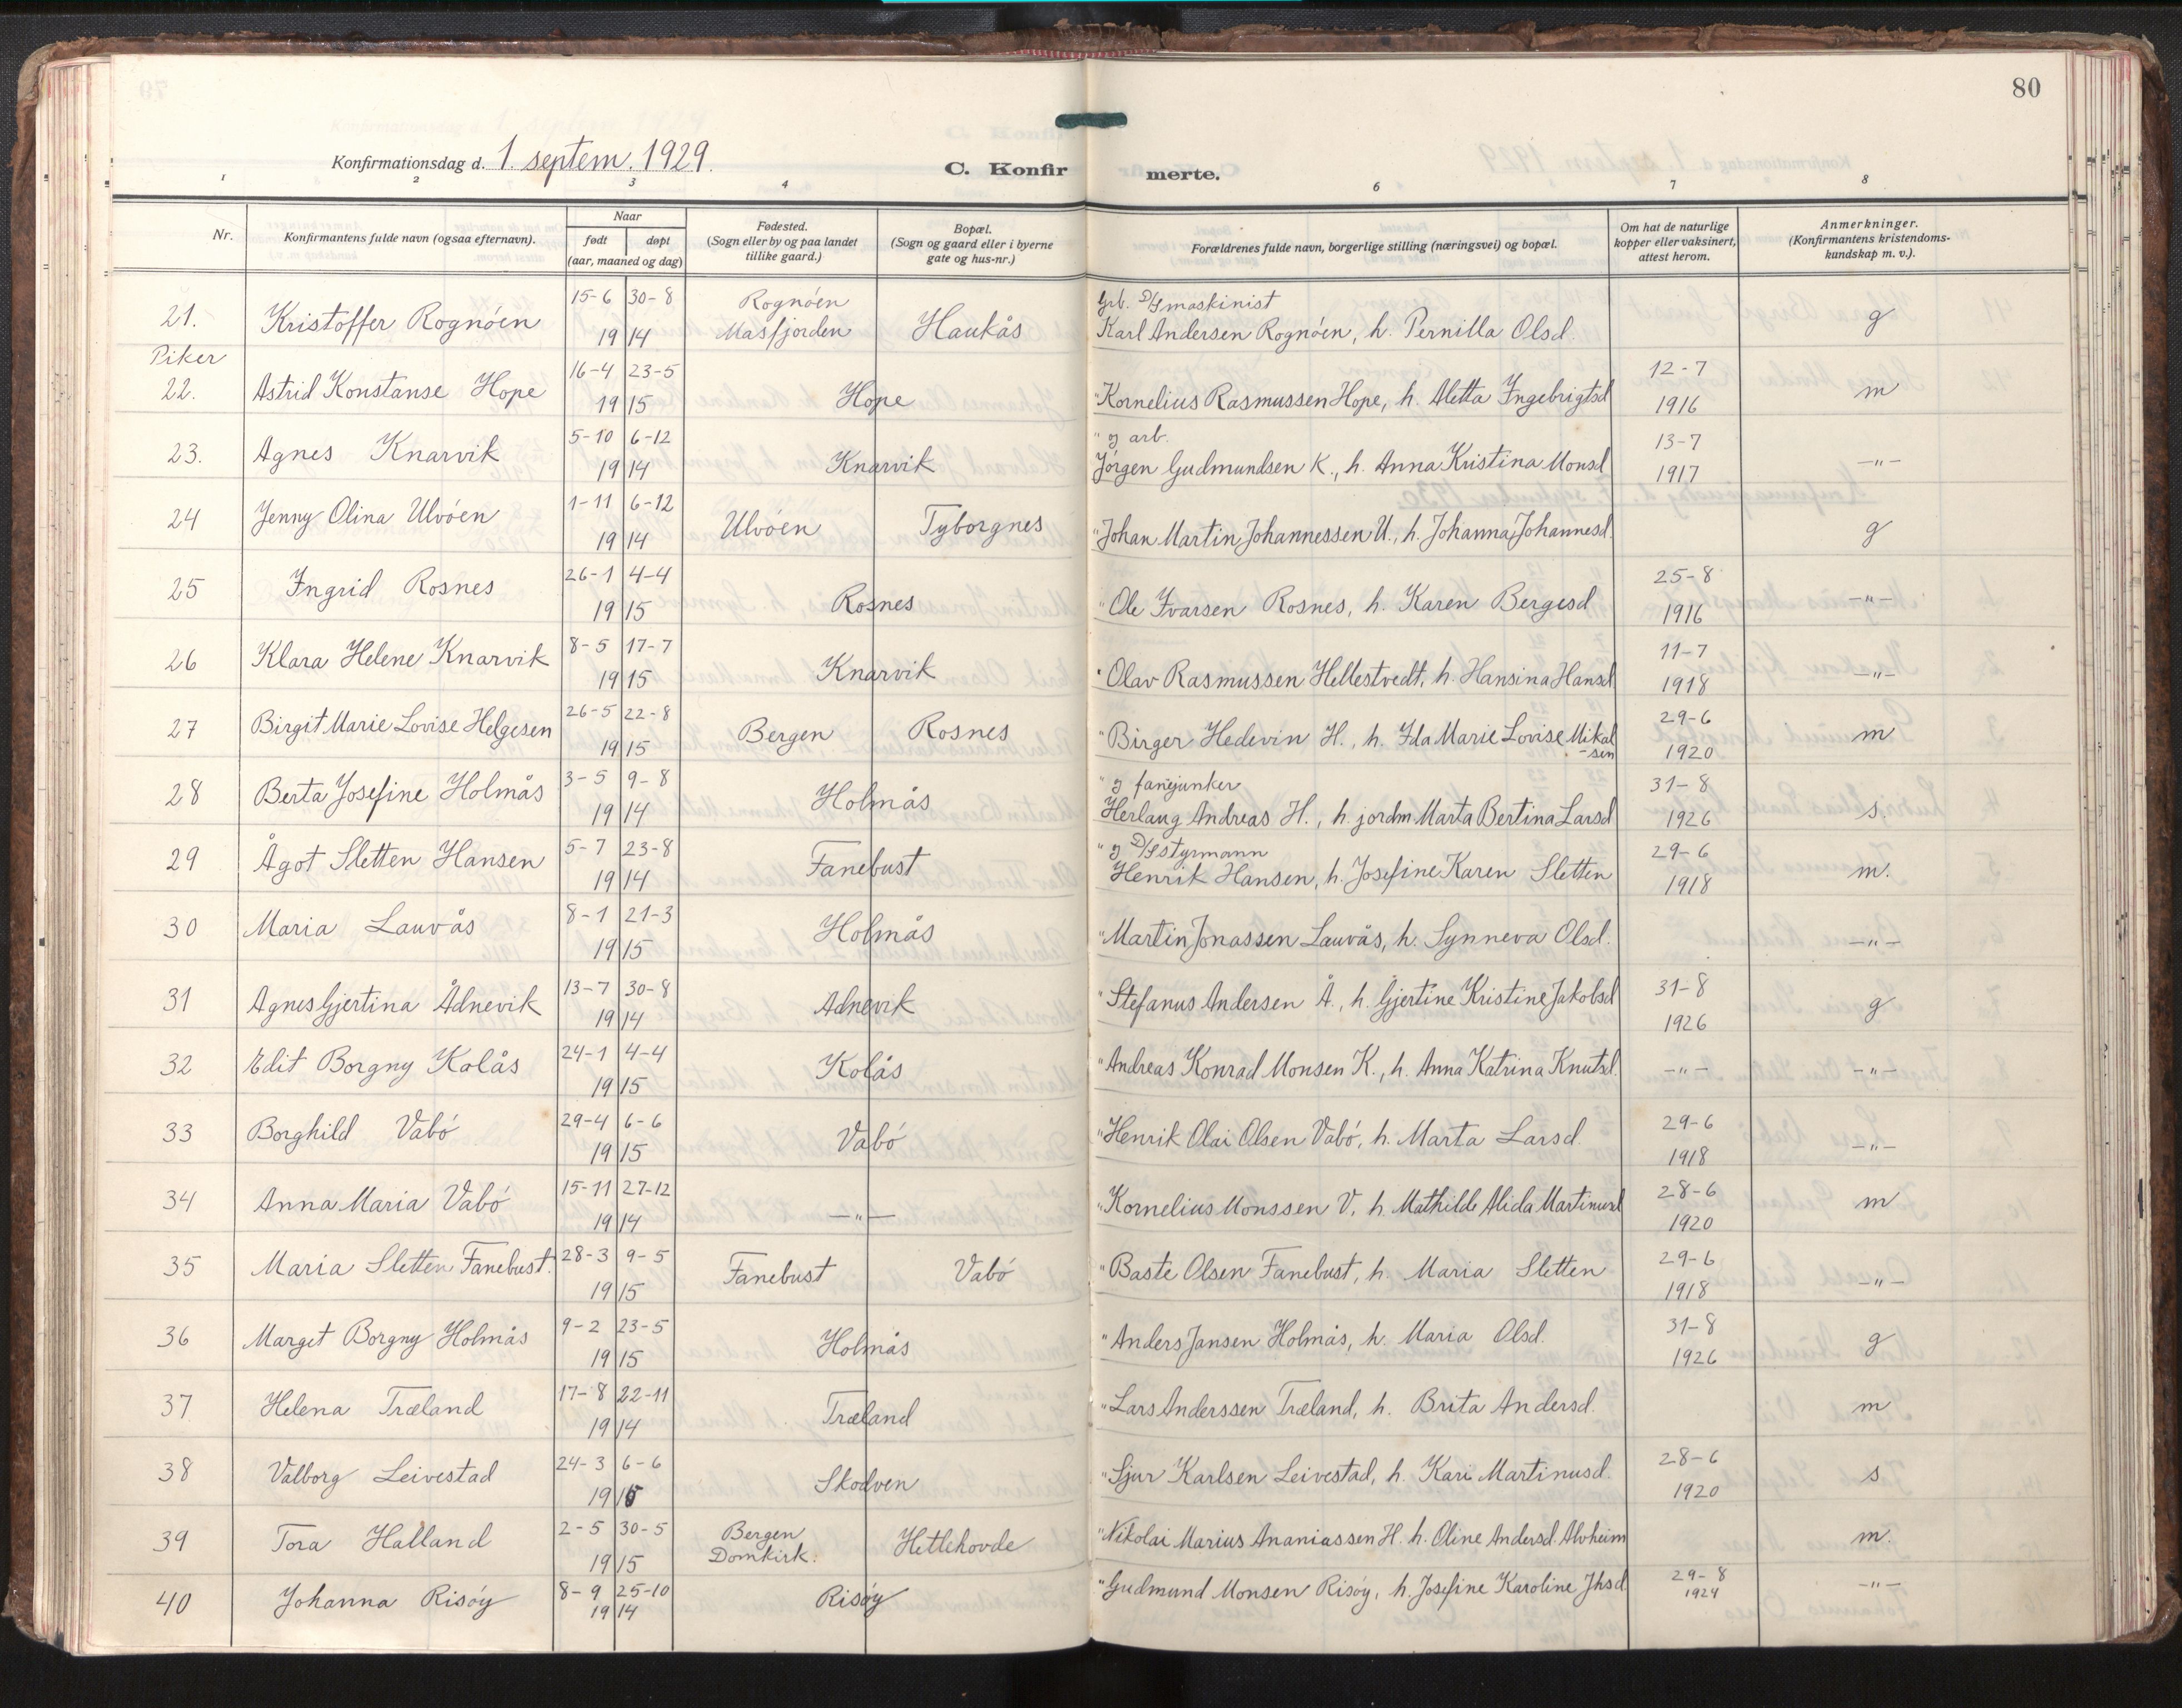 80
Konfirmationsdag d. 1. septem. 1929.
C. Konfir merte.
1 2 3 4 6 7 8
Nr. Konfirmantens fulde navn (ogsaa efternavn). Naar født døpt (aar, maaned og dag) Fødested. (Sogn eller by og paa landet tillike gaard.) Bopæl. (Sogn og gaard eller i byerne gate og hus-nr.) Forældrenes fulde navn, borgerlige stilling (næringsvei) og bopæl. Om hat de naturlige kopper eller vaksinert, attest herom. Anmerkninger. (Konfirmantens kristendoms- kundskap m. v.).
15-6 30-8 Rognöen Grb. D/S maskinist
21. Kristoffer Rognöen 19 14 Masfjorden Haukås Karl Andersen Rognöen, h. Pernilla Olsd. g
Piker
16-4 23-5 12-7
22. Astrid Konstanse Hope 19 15 Hope " Kornelius Rasmussen Hope, h. Aletta Ingebrigtsd 1916 m
5-10 6-12 " og arb. 13-7
23. Agnes Knarvik 19 14 Knarvik Jörgen Gudmundsen K., h. Anna Kristina Monsd 1917 -"-
1-11 6-12
24 Jenny Olina Ulvöen 19 14 Ulvöen Tyborgnes " Johan Martin Johannessen U., h. Johanna Johannesd. g
26-1 4-4 25-8
25 Ingrid Rosnes 19 15 Rosnes " Ole Ivarsen Rosnes, h. Karen Bergesd 1916 -"-
8-5 17-7 11-7
26 Klara Helene Knarvik 19 15 Knarvik " Olav Rasmussen Hellestvedt, h. Hansina Hansd 1918 -"-
26-5 22-8 29-6
27 Birgit Marie Lovise Helgesen 19 15 Bergen Rosnes " Birger Hedevin H., h. Ida Marie Lovise Mikal-sen 1920 m
3-5 9-8 " og fanejunker 31-8
28 Berta Josefine Holmås 19 14 Holmås Herlaug Andreas H., h. jordm Marta Bertina Larsd 1926 s.
5-7 23-8 " og D/S styrmann 29-6
29 Ågot Sletten Hansen 19 14 Fanebust Henrik Hansen, h. Josefine Karen Sletten 1918 m.
8-1 21-3
30 Maria Lauvås 19 15 Holmås " Martin Jonassen Lauvås, h. Synneva Olsd. -"-
13-7 30-8 31-8
31 Agnes Gjertina Ådnevik 19 14 Adnevik " Stefanus Andersen Å., h. Gjertine Kristine Jakobsd 1926 g
24-1 4-4
32 Edit Borgny Kolås 19 15 Kolås " Andreas Konrad Monsen K., h. Anna Katrina Knutsd. -"- -"-
29-4 6-6 29-6
33 Borghild Vabö 19 15 Vabö " Henrik Olai Olsen Vabö, h. Marta Larsd. 1918 -"-
15-11 27-12 28-6
34 Anna Maria Vabö 19 14 -"- " Kornelius Monssen V. h. Mathilde Alida Martinusd 1920 m
28-3 9-5 29-6
35 Maria Sletten Fanebust. 19 15 Fanebust Vabö " Baste Olsen Fanebust, h. Maria Sletten 1918 -"-
9-2 23-5 31-8
36 Marget Borgny Holmås 19 15 Holmås " Anders Jansen Holmås, h. Maria Olsd. 1926 g
17-8 22-11
37 Helena Træland 19 14 Træland " Lars Anderssen Træland, h. Brita Andersd. m
24-3 6-6 28-6
38 Valborg Leivestad 19 15 Skodven " Sjur Karlsen Leivestad, h. Kari Martinusd. 1920 s
2-5 30-5 Bergen
39 Tora Halland 19 15 Domkirk. Hetlehovde " Nikolai Marius Ananiassen H. h. Oline Andersd. Alvheim m.
8-9 25-10 29-8
40 Johanna Risöy 19 14 Risöy " Gudmund Monsen Risöy, h. Josefine Karoline Jhsd 1924 -"-